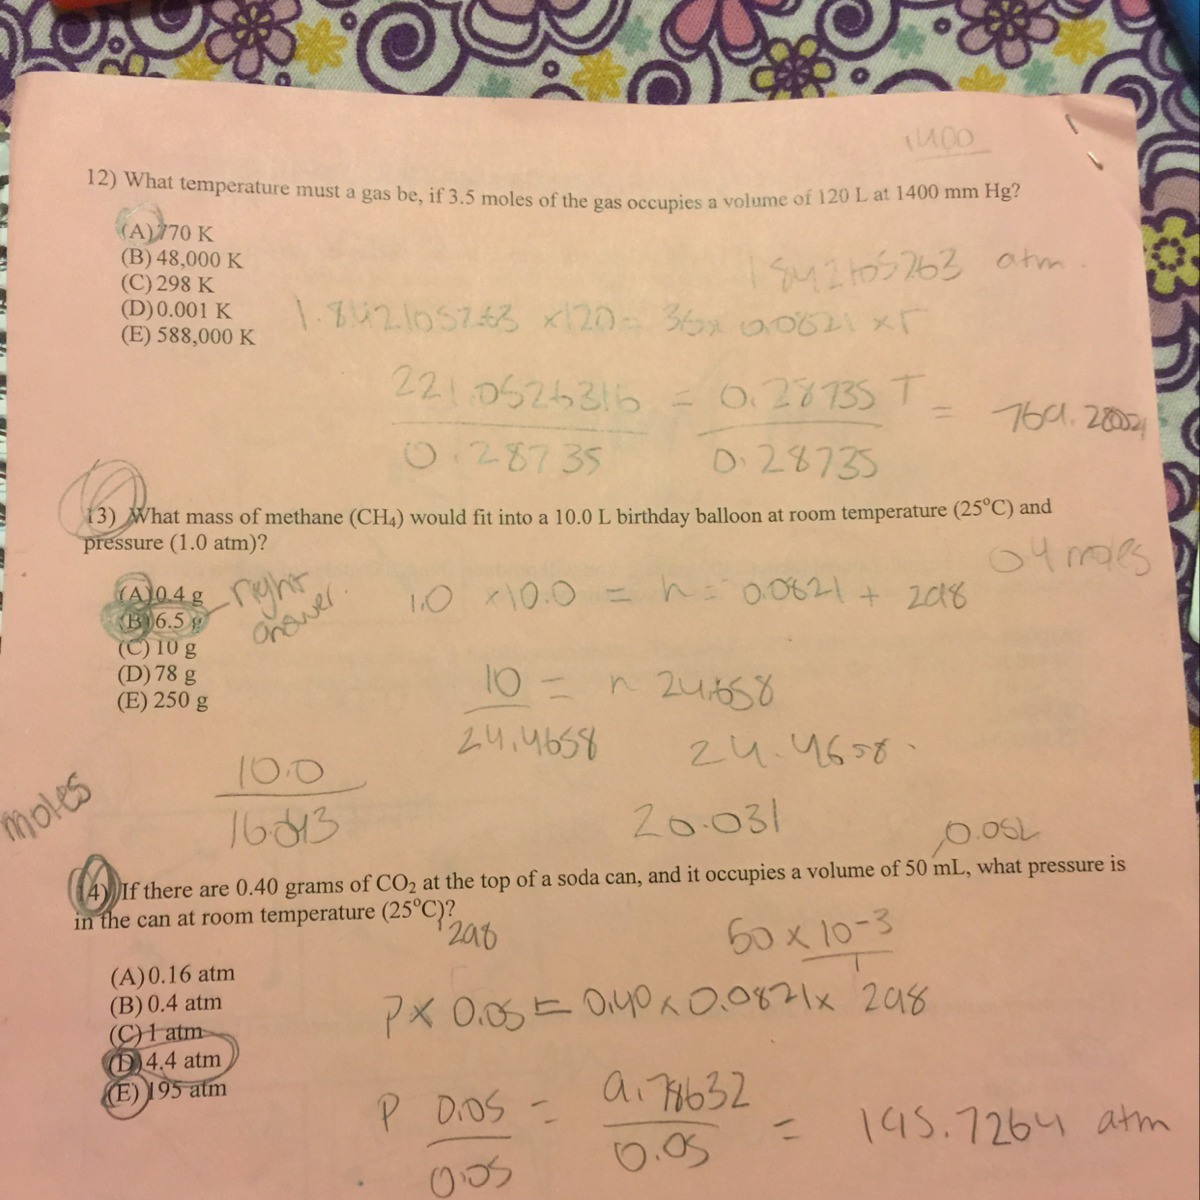 1400
12) What temperature must a gas be, if 3.5 moles of the gas occupies a volume of 120 L at 1400 mm Hg?
(A) 770 K
(B) 48,000 K
(C) 298 K
(D) 0.001 K
(E) 588,000 K
1.842105263 atm
1.842105263 × 120 = 35 × 0.0821 × T
221.0526316 = 0.28735 T = 769.28
0.28735 0.28735
13) What mass of methane (CH₄) would fit into a 10.0 L birthday balloon at room temperature (25°C) and
pressure (1.0 atm)?
04 moles
(A) 0.4 g
(B) 6.5 g
(C) 10 g
(D) 78 g
(E) 250 g
right
answer.
1.0 × 10.0 = n = 0.0821 + 298
10 = n 24.4658
24.4658 24.4658
moles
10.0
16.043
20.031
0.05L
14) If there are 0.40 grams of CO₂ at the top of a soda can, and it occupies a volume of 50 mL, what pressure is
in the can at room temperature (25°C)?
298
50 × 10-3
1
(A) 0.16 atm
(B) 0.4 atm
(C) 1 atm
(D) 4.4 atm
(E) 195 atm
P × 0.05 = 0.40 × 0.0821 × 298
P 0.05 = 9.78632 = 195.7264 atm
0.05 0.05